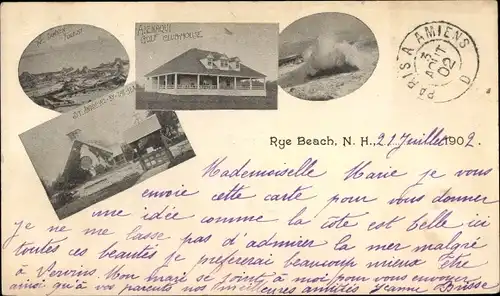 ABENAQUI
GOLF CLUBHOUSE
ST. ANDREWS-BY-THE-SEA
PARIS A AMIENS
AOUT
02
Rye Beach, N. H., 21 Juillet 1902.
Mademoiselle Marie je vous
envoie cette carte pour vous donner
une idée comme la côte est belle ici
je ne me lasse pas d'admirer la mer malgré
toutes ces beautés je préférerai beaucoup mieux être
à Vervins. Mon mari se joint à moi pour vous envoyer
ainsi qu'à vos parents nos meilleures amitiés Jeanne